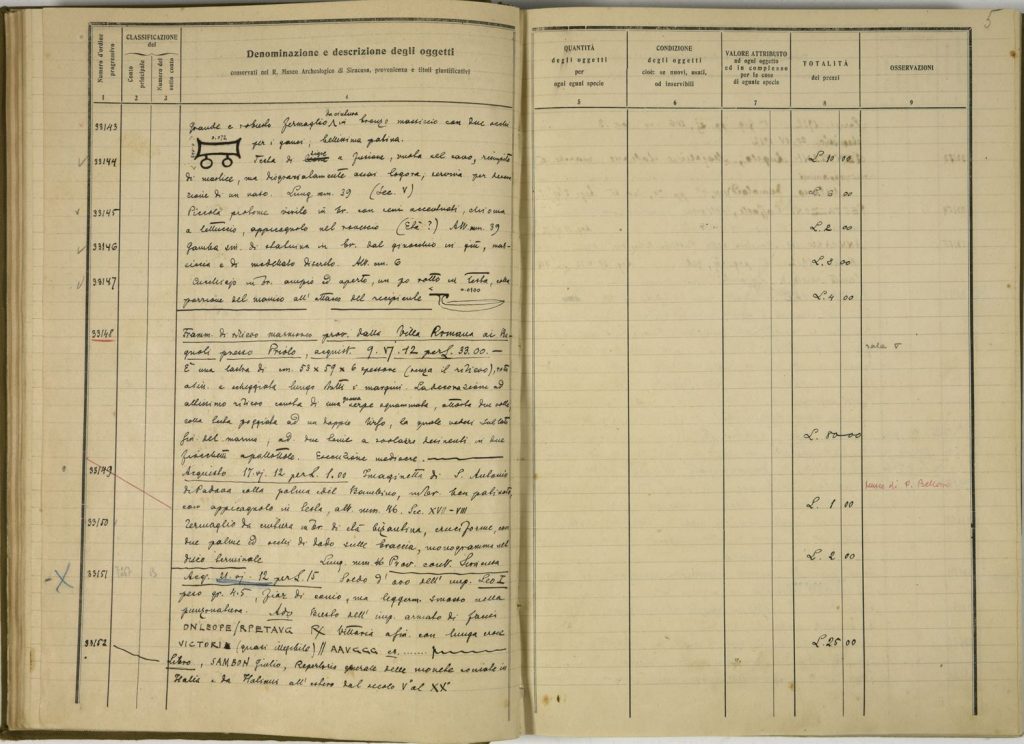 5
Numero d'ordine progressivo
CLASSIFICAZIONE del
Conto principale
Numero del sotto conto
Denominazione e descrizione degli oggetti
conservati nel R. Museo Archeologico di Siracusa, provenienza e titoli giustificativi
QUANTITÀ degli oggetti per ogni eguai specie
CONDIZIONE degli oggetti cioè: se nuovi, usati, od inservibili
VALORE ATTRIBUITO ad ogni oggetto ed in complesso per le cose di eguale specie
TOTALITÀ dei prezzi
OSSERVAZIONI
1 2 3 4 5 6 7 8 9
33143 Grande e robusto fermaglio da cintura in bronzo massiccio con due occhi
per i ganci; bellissima patina. L. 10 00
33144 Testa di a fusione, vuota nel cavo, riempita
di mastice, ma disgraziatamente assai logora; serviva per decora-
zione di un vaso. Lung. mm. 39 (Sec. V) L. 6 00
33145 Piccola protome virile in br. con seni accentuati, chioma
a, appiccagnolo nel rovescio (Età?) Alt. mm. 39 L. 2 00
33146 Gamba sin. di statuina in br. dal ginocchio in giù, mas-
siccia e di modellato discreto. Alt. mm. 6 L. 3 00
33147 Cucchiajo in br. ampio ed aperto, un po rotto in testa, colla
porzione del manico all' attacco del recipiente L. 4 00
33148 Framm. di rilievo marmoreo prov. dalla Villa Romana ai
presso Priolo, acquist. 9. VI. 12 per L. 33.00. —
È una lastra di cm. 53 x 59 x 6 spessore (senza il rilievo), rotta
a sin. e scheggiata lungo tutti i margini. La decorazione ad
altissimo rilievo consta di una grossa serpe squammata, attorta due volte
colla testa poggiata ad un doppio
sin. del marmo, ad due in due
Esecuzione mediocre. L. 80 00
sala V
33149 Acquisto 17. VI. 12 per L. 1.00 Imaginetta di S. Antonio
di Padova colla palma e del Bambino, in br. ben patinato
con appiccagnolo in testa, alt. mm. 46. Sec. XVII-VIII L. 1 00
33150 Fermaglio da cintura in br. di età bizantina, cruciforme, con
due palme ed occhi di dado sulle braccia, monogramma nel
disco terminale Lung. mm. 46 Prov. cont. Siracusa L. 2 00
33151 Acq. 21. VI. 12 per L. 15 Soldo d' oro dell' imp. Leo I
peso gr. 4.5, Fior di conio, ma leggerm. smosso nella
punzonatura. Ads Busto dell' imp. armato di fronte
DNLEOPE/RPETAVG Rx Vittoria a sin. con lunga croce
VICTORIA (quasi illegibile) // AAVGGG es. L. 25 00
33152 Libro, SAMBON Giulio, Repertorio generale delle monete coniate in
Italia e da Italiani all' estero dal secolo V° al XX°